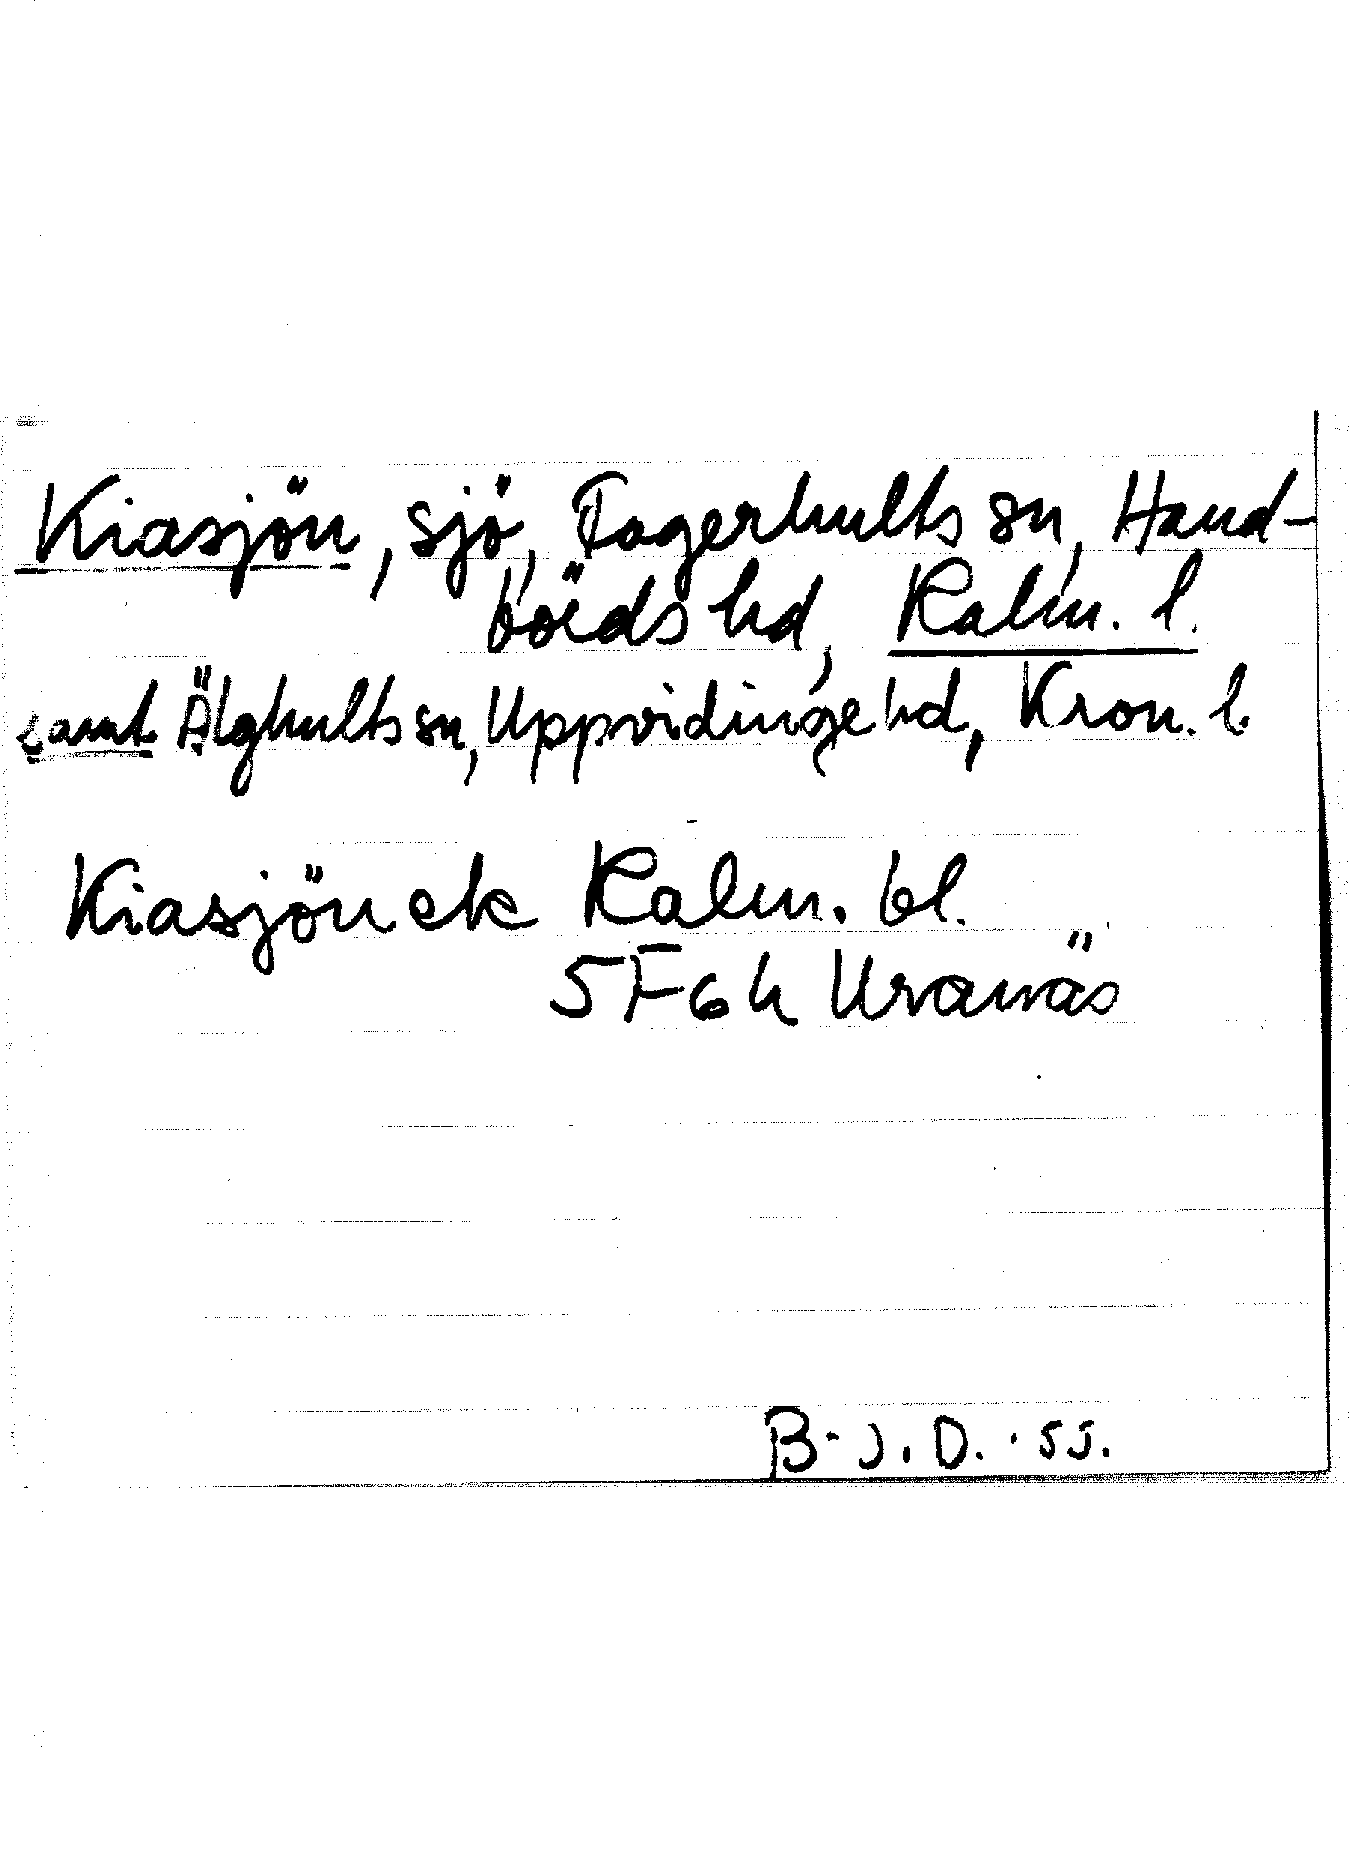 Kiasjön, sjö, Fagerhults sn, Hand-
börds hd, Kalm. l.
samt Älghults sn, Uppvidinge hd, Kron. l.
Kiasjön ek Kalm. bl.
5 F 6 h Uranäs
B-J. D. 55.